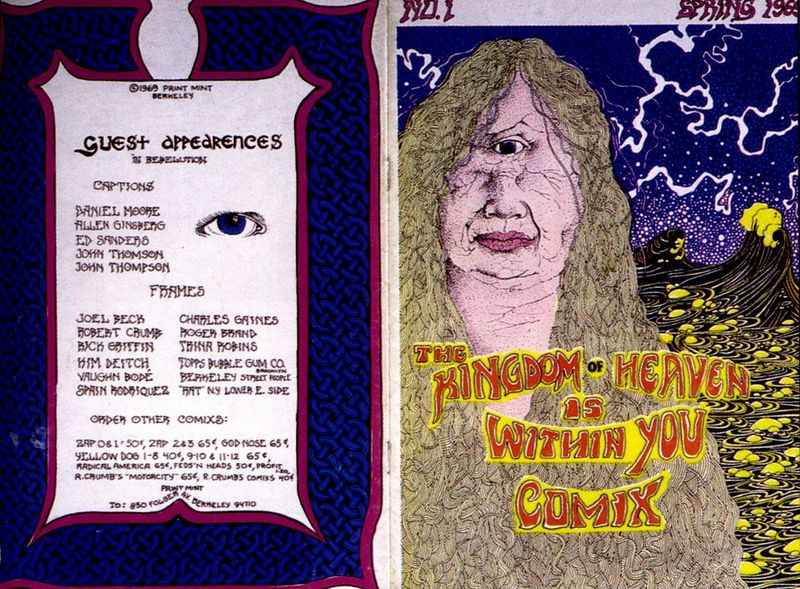 ©1969 PRINT MINT
BERKELEY
GUEST APPEARENCES
IN REBELUTION
CAPTIONS
DANIEL MOORE
ALLEN GINSBERG
ED SANDERS
JOHN THOMSON
JOHN THOMPSON
FRAMES
JOEL BECK
ROBERT CRUMB
RICK GRIFFIN
KIM DEITCH
VAUGHN BODE
SPAIN RODRIQUEZ
CHARLES GAINES
ROGER BRAND
TRINA ROBINS
TOPPS BUBBLE GUM CO.
BROOKLYN
BERKELEY STREET PEOPLE
RAT NY LOWER E. SIDE
ORDER OTHER COMIXS:
ZAP 0 & 1 = 50¢, ZAP 2 & 3 65¢, GOD NOSE 65¢
YELLOW DOG 1-8 40¢, 9-10 & 11-12 65¢,
RADICAL AMERICA 65¢, FEDS'N HEADS 50¢,
R. CRUMB'S "MOTORCITY" 65¢, R. CRUMBS COMIXS 40¢
PRINT MINT
TO: 830 FOLGER AV. BERKELEY 94710
NO. 1
SPRING 196
THE
KINGDOM OF HEAVEN
IS
WITHIN YOU
COMIX